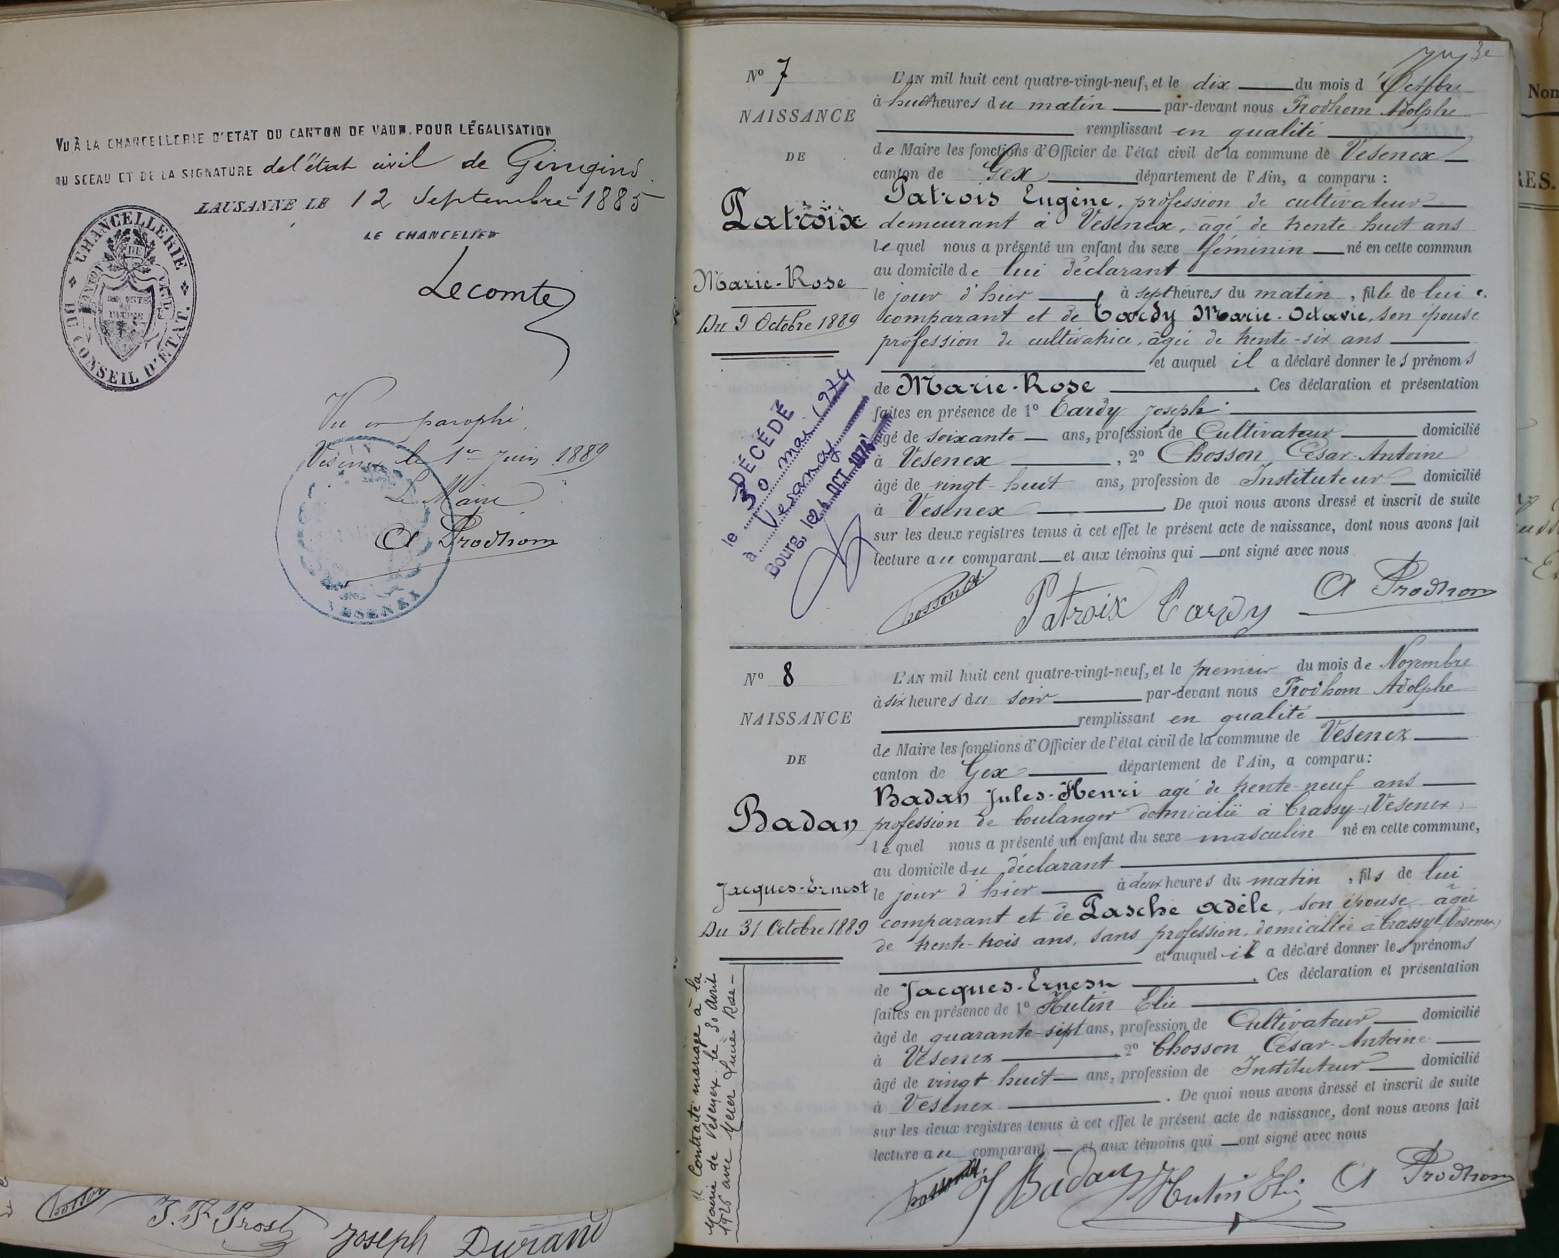 VU À LA CHANCELLERIE D'ETAT DU CANTON DE VAUD. POUR LÉGALISATION
DU SCEAU ET DE LA SIGNATURE de l'état civil de Gingins.
LAUSANNE LE 12 Septembre 1885
LE CHANCELIER
Lecomte
CHANCELLERIE
DU CONSEIL D'ÉTAT.
Vu et paraphé,
Vesenex le 1er Juin 1889
Le Maire
A Prodhom
VESENEX
J. F. Prost Joseph Durand
No 7
NAISSANCE
DE
Patroix
Marie-Rose
Du 9 Octobre 1889
DÉCÉDÉ
le 30 mai 1974
à Vesanay
Bourg, le 24 OCT. 1978
L'AN mil huit cent quatre-vingt-neuf, et le dix du mois d'Octobre
à huit heures du matin par-devant nous Prodhom Adolphe
remplissant en qualité
de Maire les fonctions d'Officier de l'état civil de la commune de Vesenex
canton de Gex département de l'Ain, a comparu :
Patrois Eugène, profession de cultivateur
demeurant à Vesenex, âgé de trente huit ans
lequel nous a présenté un enfant du sexe féminin né en cette commun
au domicile de lui déclarant
le jour d'hier, à sept heures du matin, fille de lui
comparant et de Tardy Marie-Octavie, son épouse
profession de cultivatrice, âgée de trente-six ans
et auquel il a déclaré donner les prénoms
de Marie-Rose. Ces déclaration et présentation
faites en présence de 1º Tardy Joseph
âgé de soixante ans, profession de Cultivateur domicilié
à Vesenex, 2º Chosson César-Antoine
âgé de vingt-huit ans, profession de Instituteur domicilié
à Vesenex. De quoi nous avons dressé et inscrit de suite
sur les deux registres tenus à cet effet le présent acte de naissance, dont nous avons fait
lecture au comparant et aux témoins qui ont signé avec nous
Chosson CA Patroix Tardy A Prodhom
No 8
NAISSANCE
DE
Badan
Jacques-Ernest
Du 31 Octobre 1889
Contracte mariage à la
Mairie de Vesenex le 30 avril
1926 avec Meier Lucie Rose
L'AN mil huit cent quatre-vingt-neuf, et le premier du mois de Novembre
à six heures du soir par-devant nous Prodhom Adolphe
remplissant en qualité
de Maire les fonctions d'Officier de l'état civil de la commune de Vesenex
canton de Gex département de l'Ain, a comparu :
Badan Jules-Henri agé de trente-neuf ans
profession de boulanger domicilié à Crassy-(Vesenex)
lequel nous a présenté un enfant du sexe masculin né en cette commune,
au domicile du déclarant
le jour d'hier à deux heures du matin, fils de lui
comparant et de Pasche Adèle, son épouse, âgée
de trente-trois ans, sans profession, domiciliée à Crassy (Vesenex)
et auquel il a déclaré donner les prénoms
de Jacques-Ernest. Ces déclaration et présentation
faites en présence de 1º Hutin Elie
âgé de quarante-sept ans, profession de Cultivateur domicilié
à Vesenex 2º Chosson César-Antoine
âgé de vingt huit ans, profession de Instituteur domicilié
à Vesenex. De quoi nous avons dressé et inscrit de suite
sur les deux registres tenus à cet effet le présent acte de naissance, dont nous avons fait
lecture au comparant et aux témoins qui ont signé avec nous
Chosson CA J Badan Hutin Eli A Prodhom